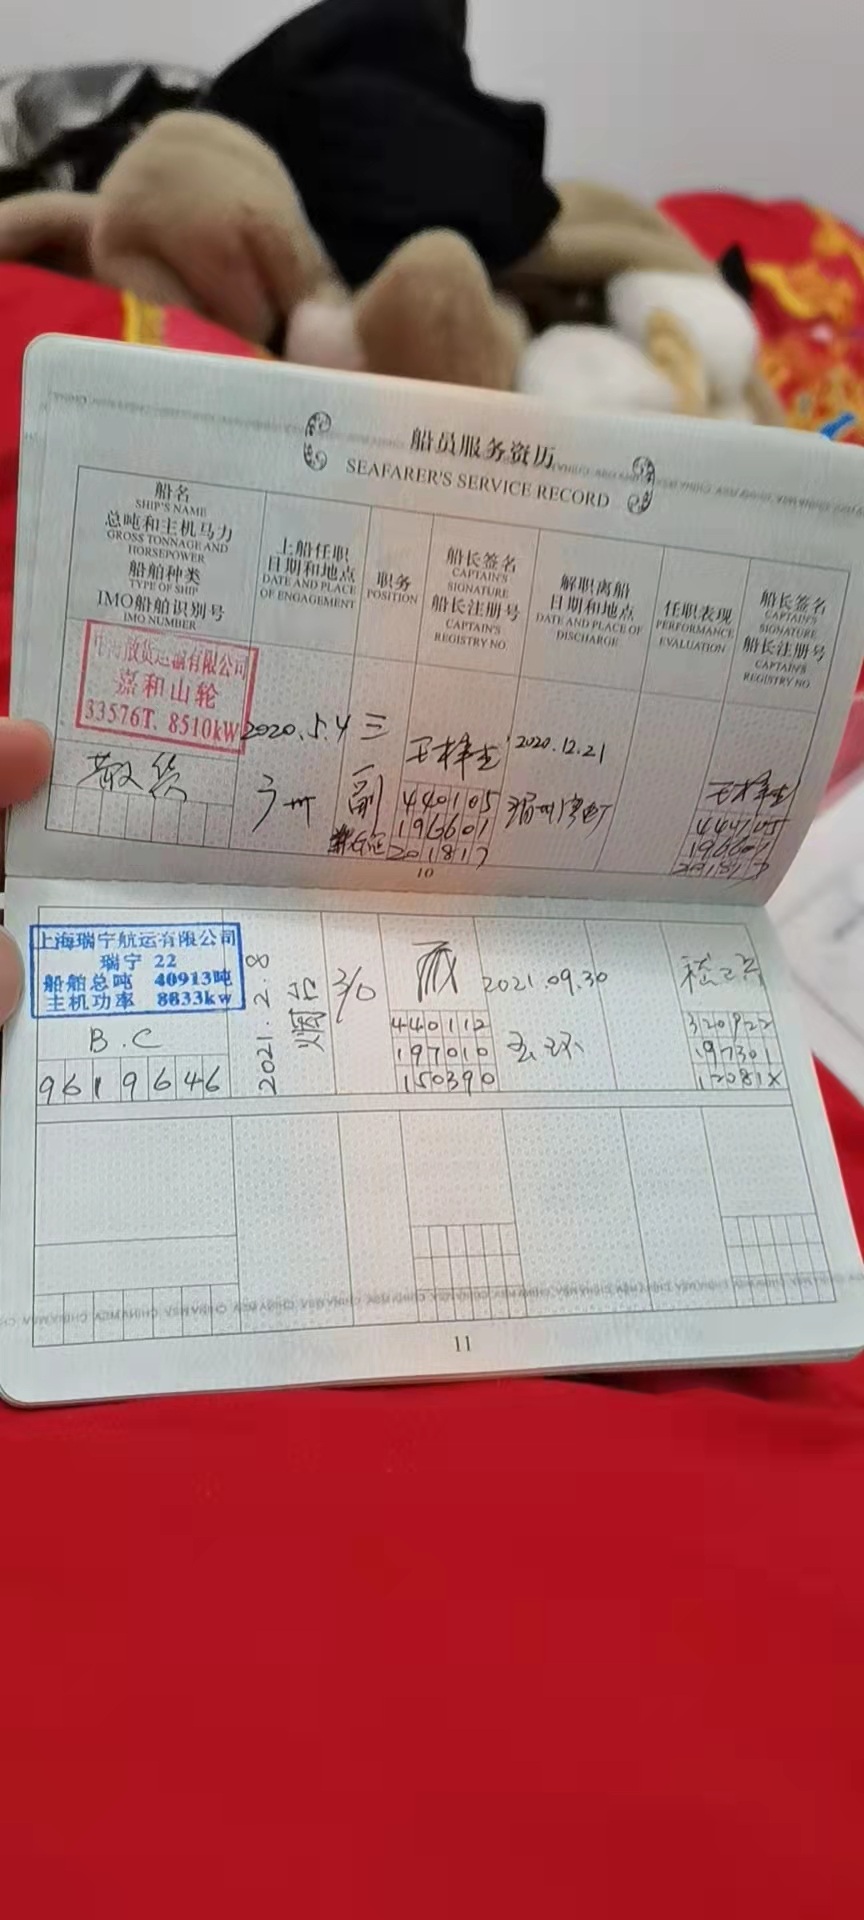 船员服务资历
SEAFARER'S SERVICE RECORD
船名
SHIP'S NAME
总吨和主机马力
GROSS TONNAGE AND
HORSEPOWER
船舶种类
TYPE OF SHIP
IMO船舶识别号
IMO NUMBER
上船任职
日期和地点
DATE AND PLACE
OF ENGAGEMENT
职务
POSITION
船长签名
CAPTAIN'S
SIGNATURE
船长注册号
CAPTAIN'S
REGISTRY NO.
解职离船
日期和地点
DATE AND PLACE OF
DISCHARGE
任职表现
PERFORMANCE
EVALUATION
船长签名
CAPTAIN'S
SIGNATURE
船长注册号
CAPTAIN'S
REGISTRY NO.
散货运输有限公司
嘉和山轮
33576T. 8510kW
散货
2020.5.4
广州
三
副
440105
196601
201817
2020.12.21
10
上海瑞宁航运有限公司
瑞宁 22
船舶总吨 40913吨
主机功率 8833kw
B.C
9619646
2021.2.8
烟台
3/0
440112
197010
150390
2021.09.30
320922
197301
12081X
CHINA MSA
11